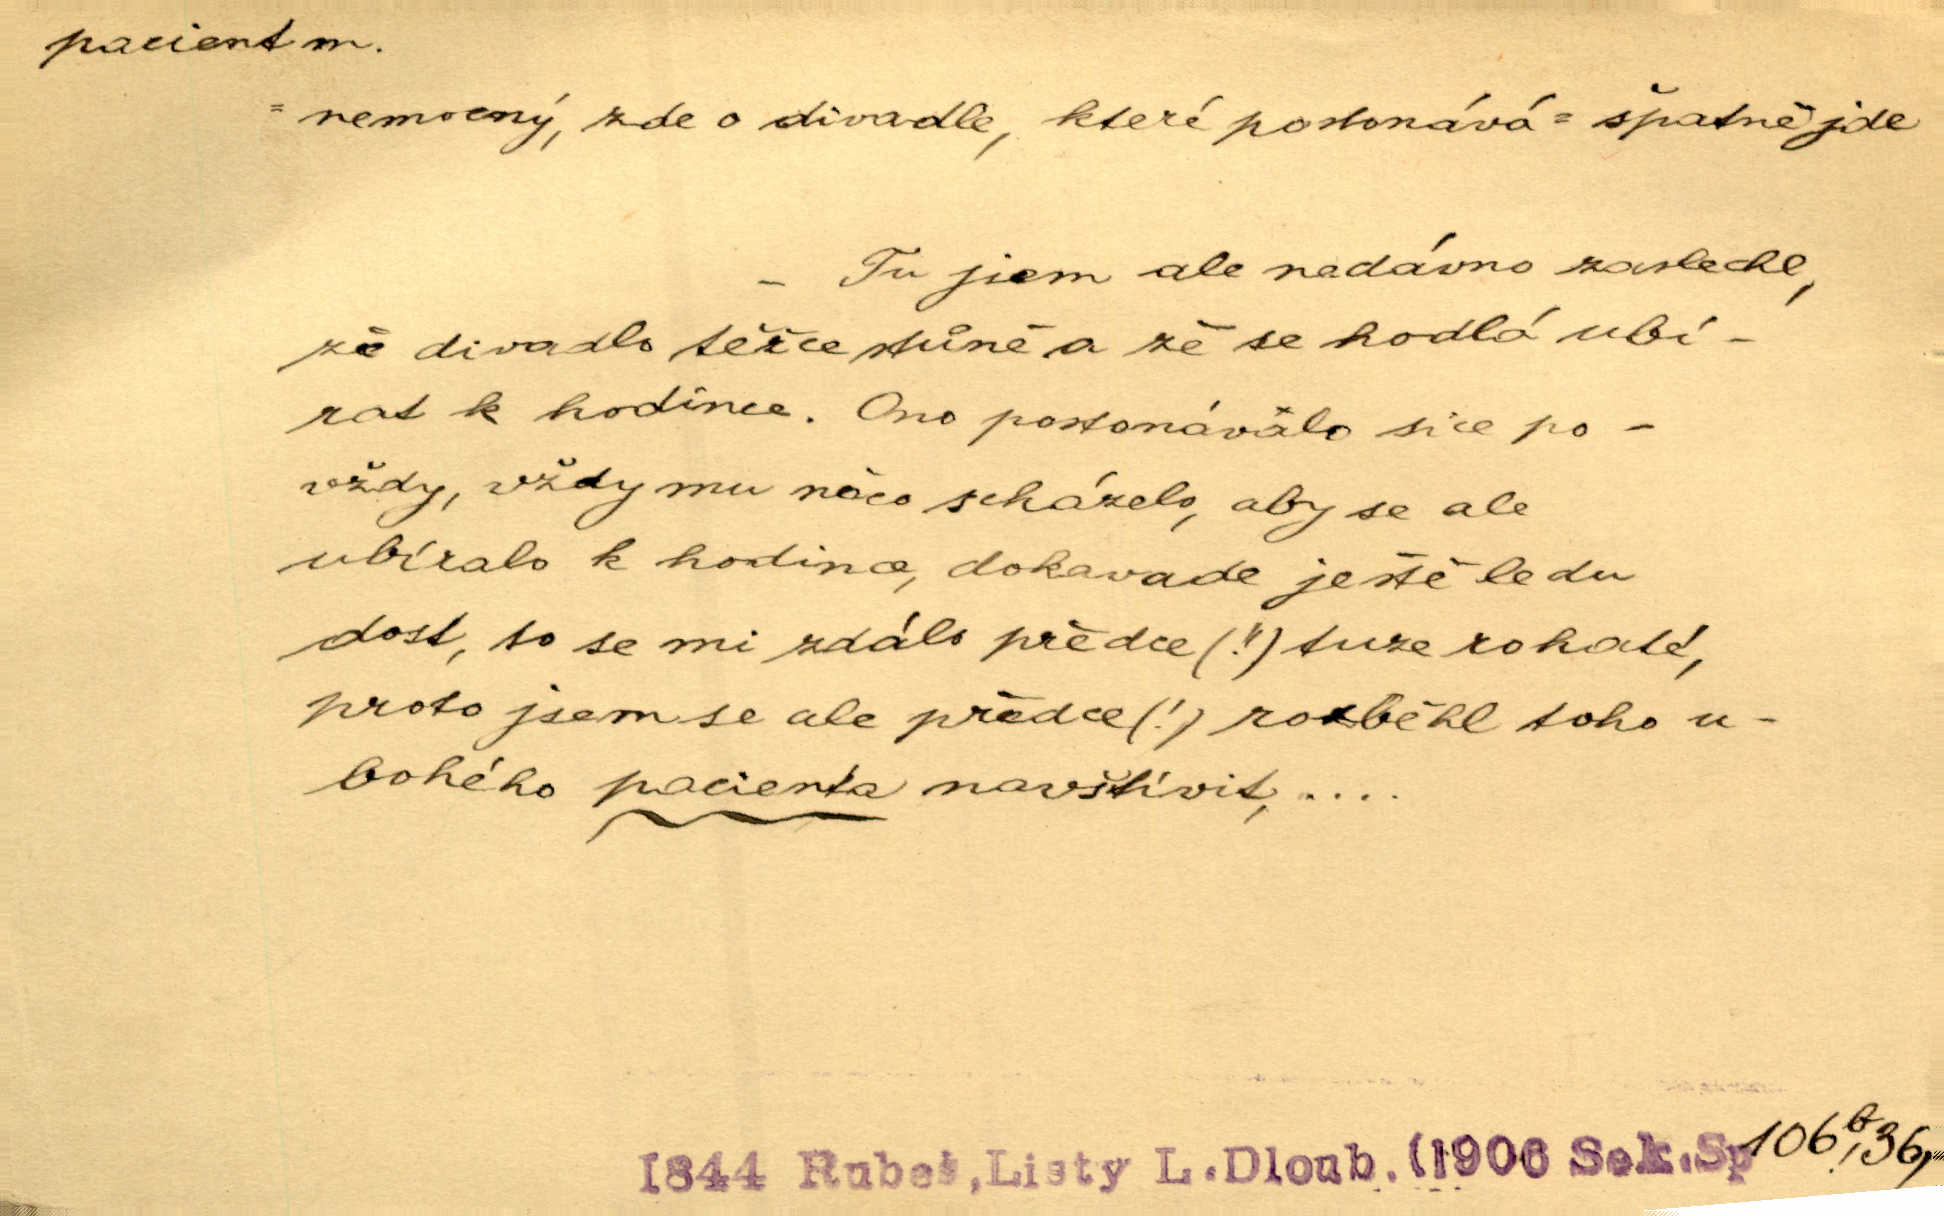 pacient m.
= nemocný, zde o divadle, které postonává = špatně jde
– Tu jsem ale nedávno zaslechl,
že divadlo těžce stůně a že se hodlá ubí-
rat k hodince. Ono postonávalo sice po-
vždy, vždy mu něco scházelo, aby se ale
ubíralo k hodince, dokavade ještě ledu
dost, to se mi zdálo předce (!!) tuze rohaté,
proto jsem se ale předce (!) rozběhl toho u-
bohého pacienta navštívit, ....
1844 Rubeš, Listy L. Dloub. (1906 Seb. Sp
106b, 36,